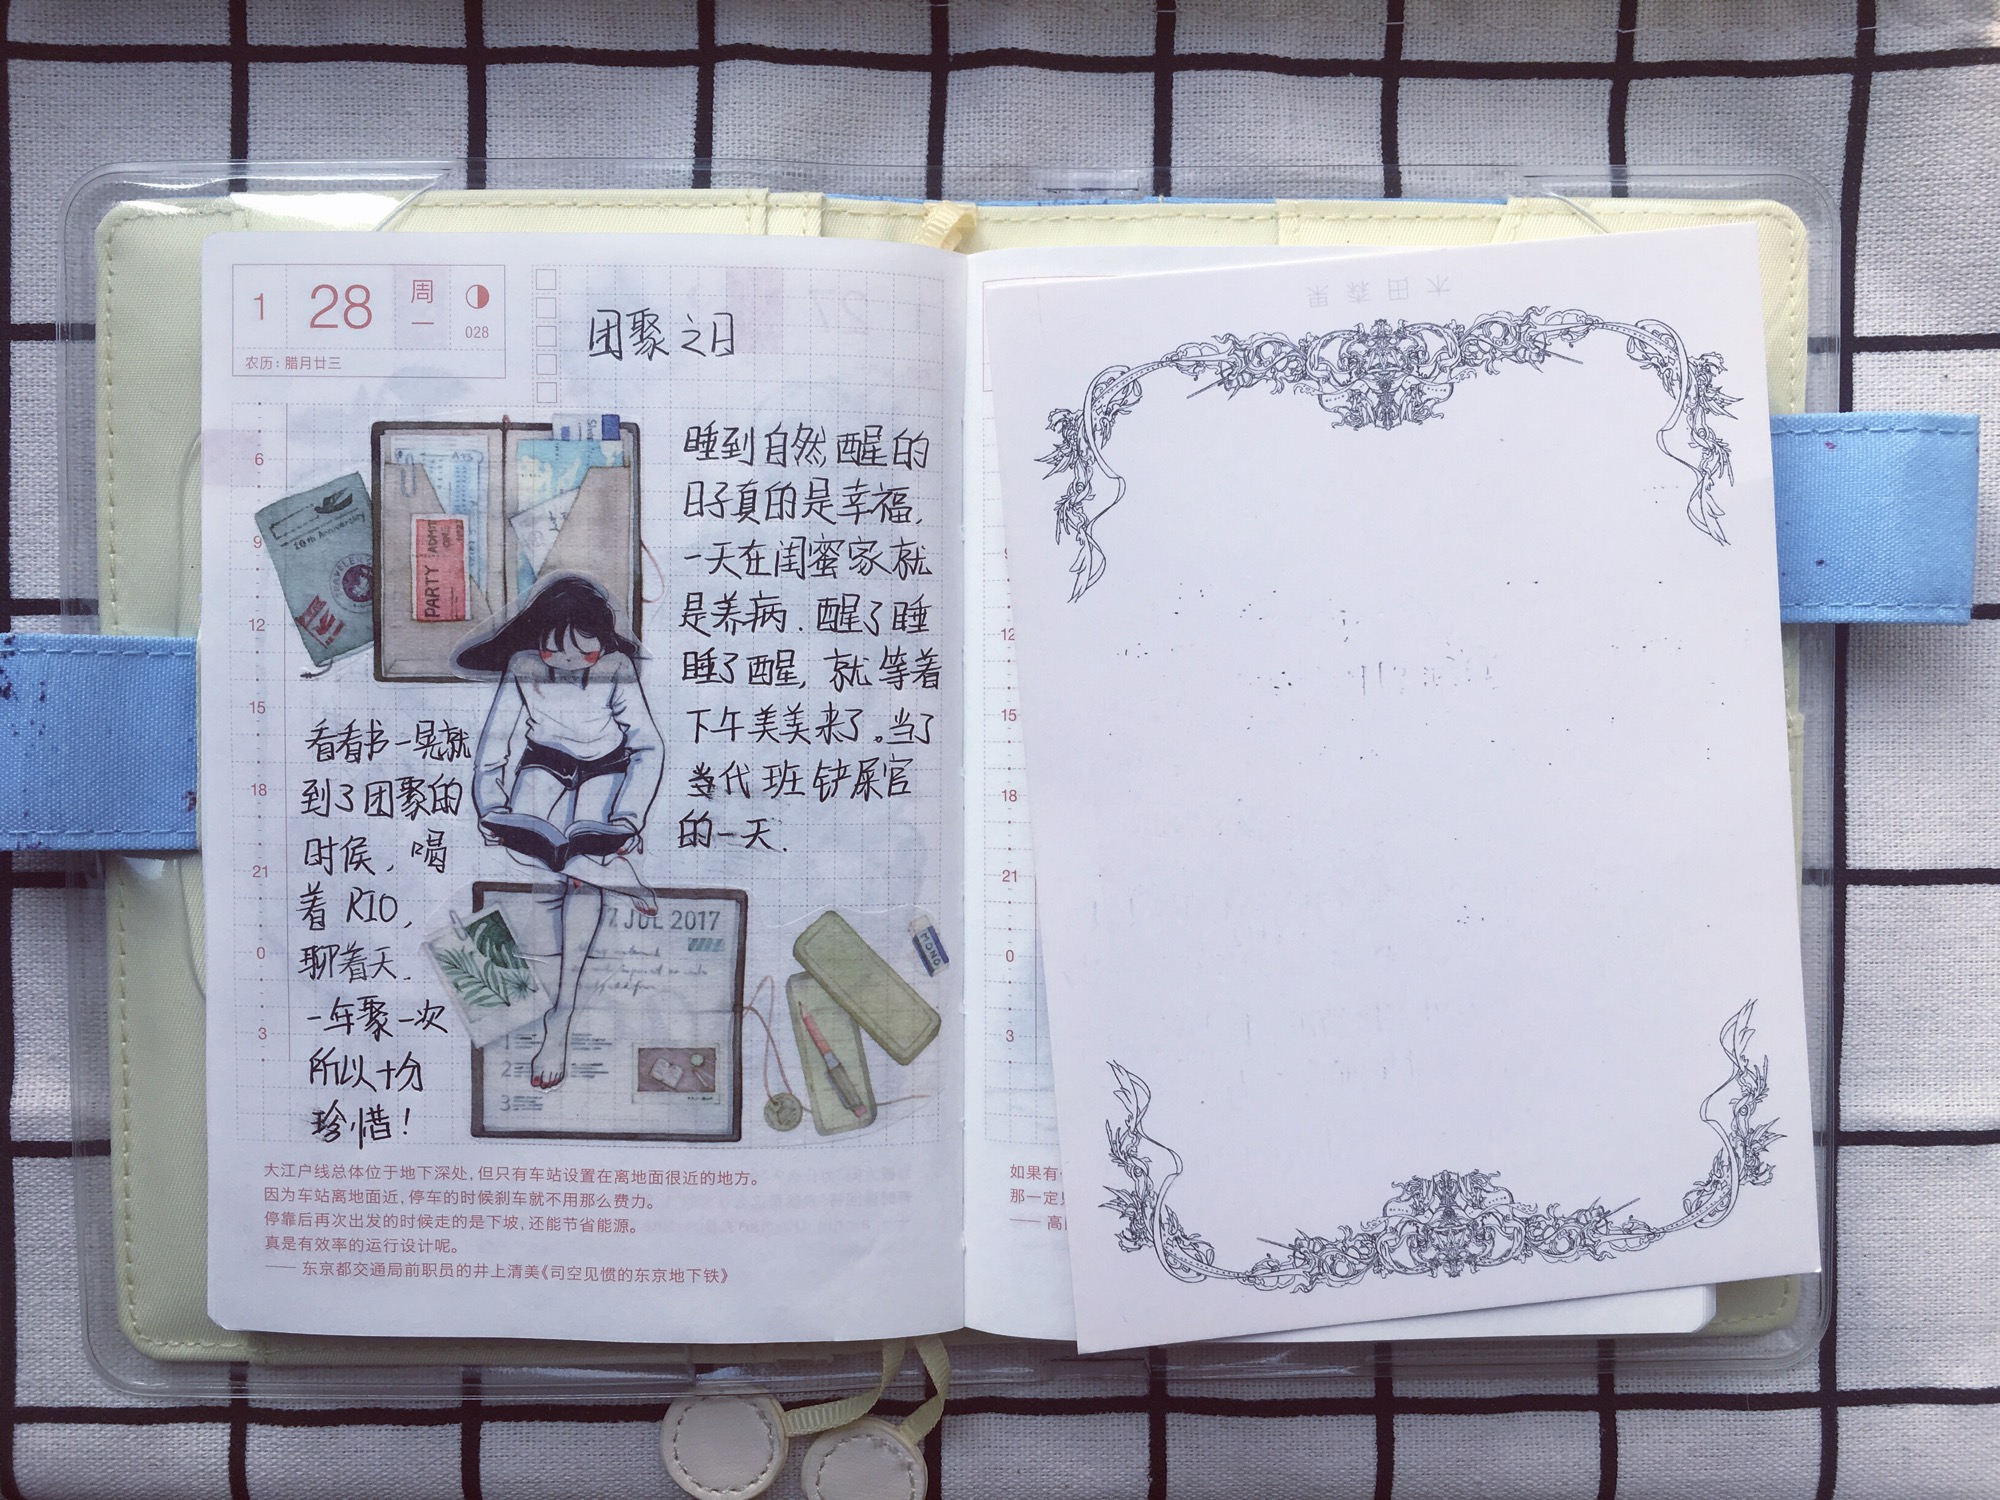 1 28 周一
028
农历：腊月廿三
团聚之日
睡到自然醒的
日子真的是幸福，
一天在闺蜜家就
是养病．醒了睡
睡了醒，就等着
下午美美来了。当了
当代班铲屎官
的一天．
看看书一晃就
到了团聚的
时候，喝
着RIO，
聊着天．
一年聚一次
所以十分
珍惜！
6
9
12
15
18
21
0
3
10th Anniversary
PARTY
ADMIT
ONE
7 JUL 2017
MONO
1
2
3
大江户线总体位于地下深处，但只有车站设置在离地面很近的地方。
因为车站离地面近，停车的时候刹车就不用那么费力。
停靠后再次出发的时候走的是下坡，还能节省能源。
真是有效率的运行设计呢。
—— 东京都交通局前职员的井上清美《司空见惯的东京地下铁》
木田森果
12
15
18
21
0
3
如果有
那一定
—— 高